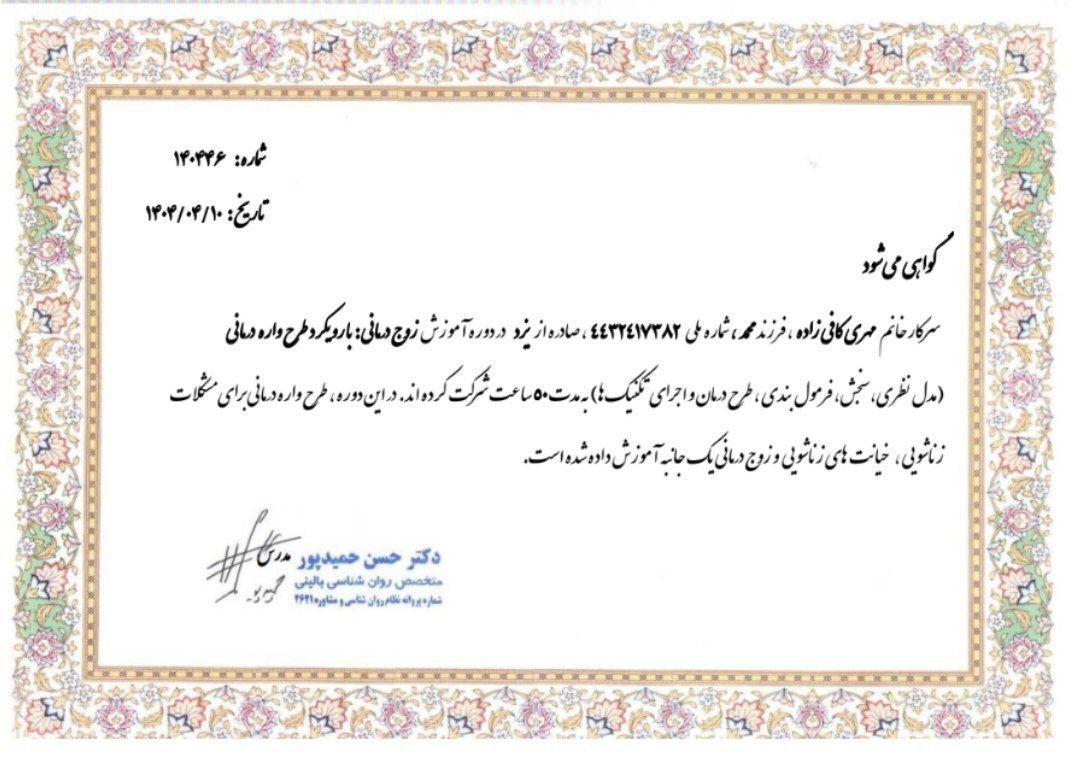 شماره: ۱۴۰۴۴۶
تاریخ: ۱۴۰۴/۰۴/۱۰
گواهی می شود
سرکار خانم مهری کافی زاده ، فرزند محمد ، شماره ملی ۴۴۳۲۴۱۷۳۸۲ ، صادره از یزد در دوره آموزش زوج درمانی: با رویکرد طرح واره درمانی
(مدل نظری، سنجش، فرمول بندی ، طرح درمان و اجرای تکنیک ها) به مدت ۵۰ ساعت شرکت کرده اند. در این دوره ، طرح واره درمانی برای مشکلات
زناشویی ، خیانت های زناشویی و زوج درمانی یک جانبه آموزش داده شده است.
دکتر حسن حمیدپور مدرس
متخصص روان شناسی بالینی
شماره پروانه نظام روان شناسی و مشاوره ۲۶۲۱